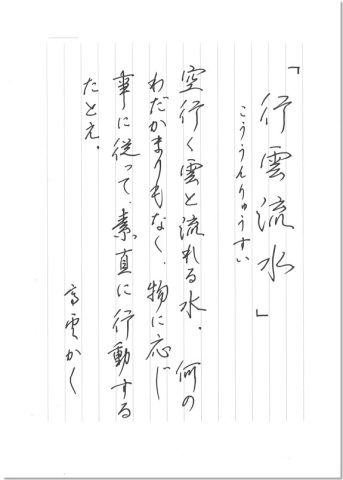 「行雲流水」
こううんりゅうすい
空行く雲と流れる水。何の
わだかまりもなく、物に応じ
事に従って、素直に行動する
たとえ。
高雲かく